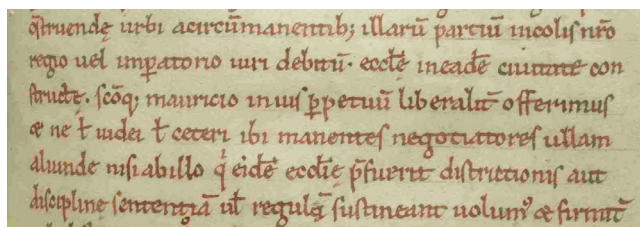 ꝯstruendę urbi acircūmanentib; illarū partiū incolis nr̄o
regio uel imꝑatorio iuri debitū· eccłe ineadē ciuitate con
structę· sc̄oq; mauricio inius ꝑpetuū liberalit̄ offerimus
& ne ł iudei ł ceteri ibi manentes negotiatores ullam
aliunde nisi abillo qͥ eidē ecclę p̄fuerit districtionis aut
discipline sententiā ul̄ regulā sustineant uolumꝰ & firmit̄